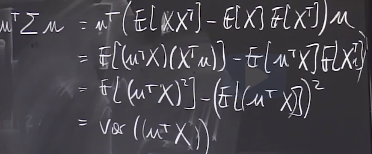 u^T Σ u = u^T (E[XX^T] - E[X] E[X^T]) u
= E[(u^T X)(X^T u)] - E[u^T X] E[X^T
= E[(u^T X)^2] - (E[(u^T X)])^2
= var((u^T X))